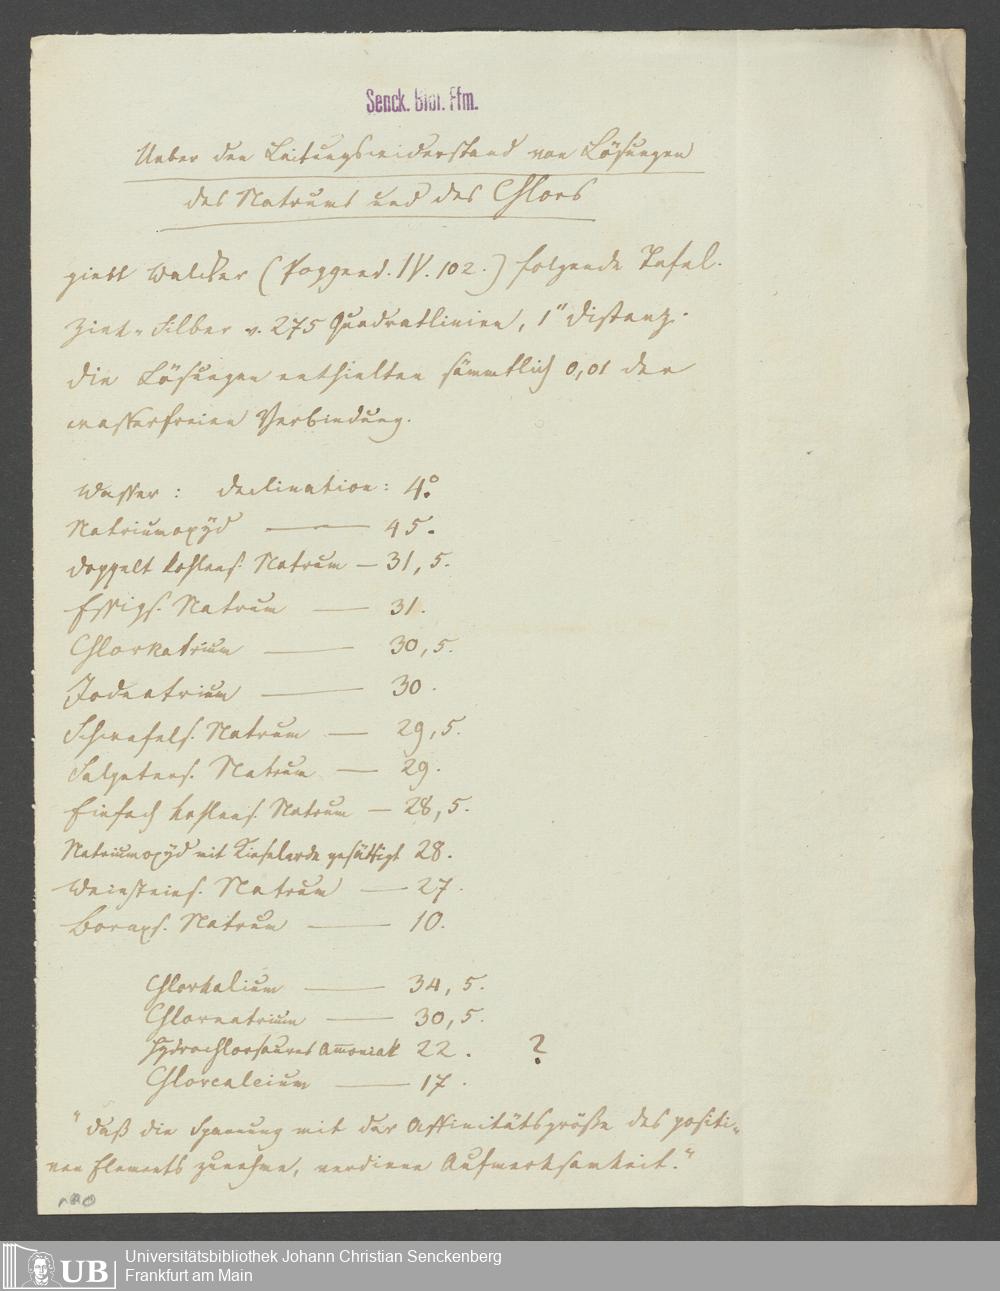 Senck. Bibl. Ffm.
Ueber den Leitungswiderstand von Lösungen
des Natrums und des Chlors
giebt Walcker (Poggend. IV. 102.) folgende Tafel.
Zink-Silber v. 275 Quadratlinien, 1" Distanz.
die Lösungen enthielten sämmtlich 0,01 der
wasserfreien Verbindung.
Wasser: declination: 4°.
Natriumoxÿd — 45.
doppelt kohlens. Natrum — 31,5.
Essigs. Natrum — 31.
Chlornatrium — 30,5.
Jodnatrium — 30.
Schwefels. Natrum — 29,5.
Salpeters. Natrum — 29.
Einfach kohlens. Natrum — 28,5.
Natriumoxÿd mit Kieselerde gesättigt 28.
Weinsteins. Natrum — 27.
Boraxs. Natrum — 10.
Chlorkalium — 34,5.
Chlornatrium — 30,5.
Hydrochlorsaures Ammoniak 22. ?
Chlorcalcium — 17.
"daß die Spannung mit der Affinitätsgröße des positi-
ven Elements zunehme, verdiene Aufmerksamkeit."
UB
Universitätsbibliothek Johann Christian Senckenberg
Frankfurt am Main